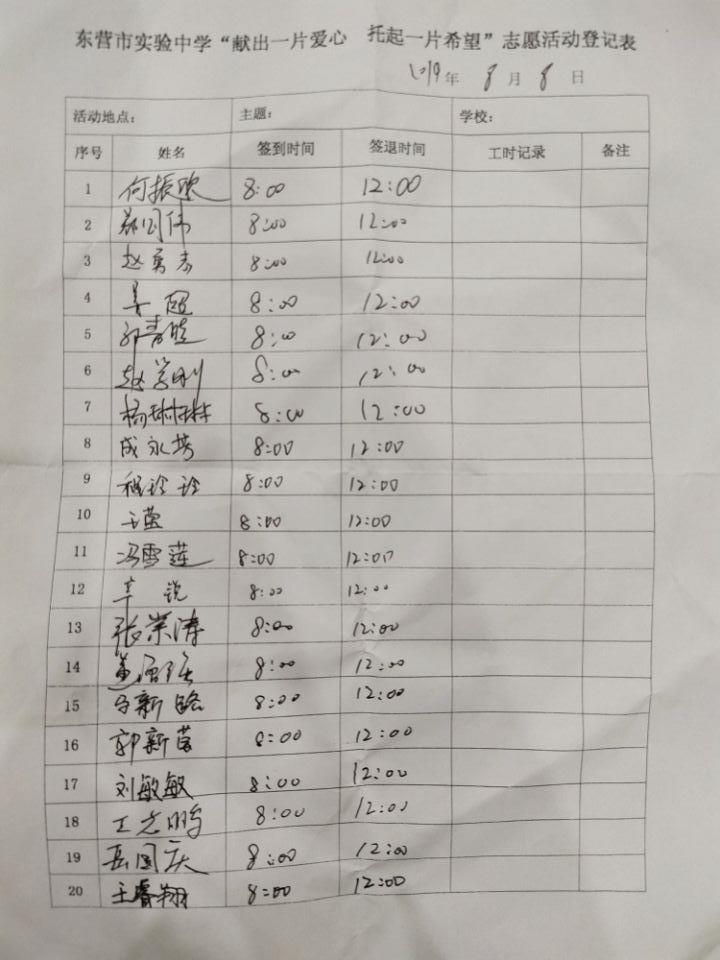 东营市实验中学“献出一片爱心 托起一片希望”志愿活动登记表
2019年 8月 8日
活动地点： 主题： 学校：
序号 姓名 签到时间 签退时间 工时记录 备注
1 何振欧 8:00 12:00
2 郑国伟 8:00 12:00
3 赵勇志 8:00 12:00
4 8:00 12:00
5 8:00 12:00
6 8:00 12:00
7 杨琳琳 8:00 12:00
8 成永芳 8:00 12:00
9 程玲玲 8:00 12:00
10 王莹 8:00 12:00
11 冯雪莲 8:00 12:00
12 辛锐 8:00 12:00
13 张崇涛 8:00 12:00
14 8:00 12:00
15 马新路 8:00 12:00
16 郭新苗 8:00 12:00
17 刘敏敏 8:00 12:00
18 王志鹏 8:00 12:00
19 岳国庆 8:00 12:00
20 王睿翔 8:00 12:00